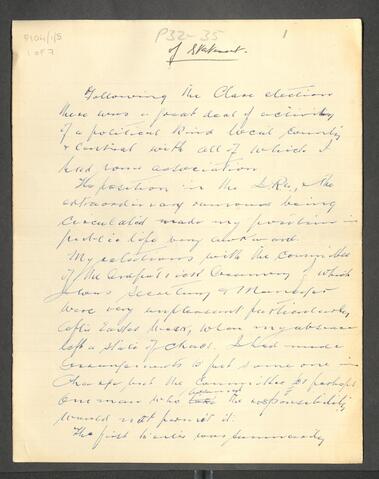 P104/1/5
1 of 7
P32-35
of Statement.
1
Following the Clare election
there was a great deal of activity
of a political kind local county
& central with all of which I
had some association.
The position in the &the
extraordinary rumours being
circulated made my position in
public life very awkward.
My relations with the Committee
of the Creamery of which
I was Secretary & Manager
were very unpleasant particularly
after Easter Week, when my absence
left a state of chaos. I had made
arrangements to put someone in
charge, but the Committee or perhaps
one man who assumed the responsibility
would not permit it.
The first was summarily